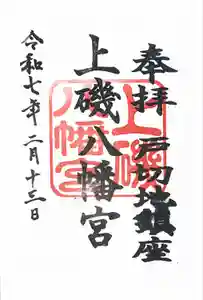 奉拝 戸切地鎮座
上磯八幡宮
上磯八幡宮
令和七年二月十三日